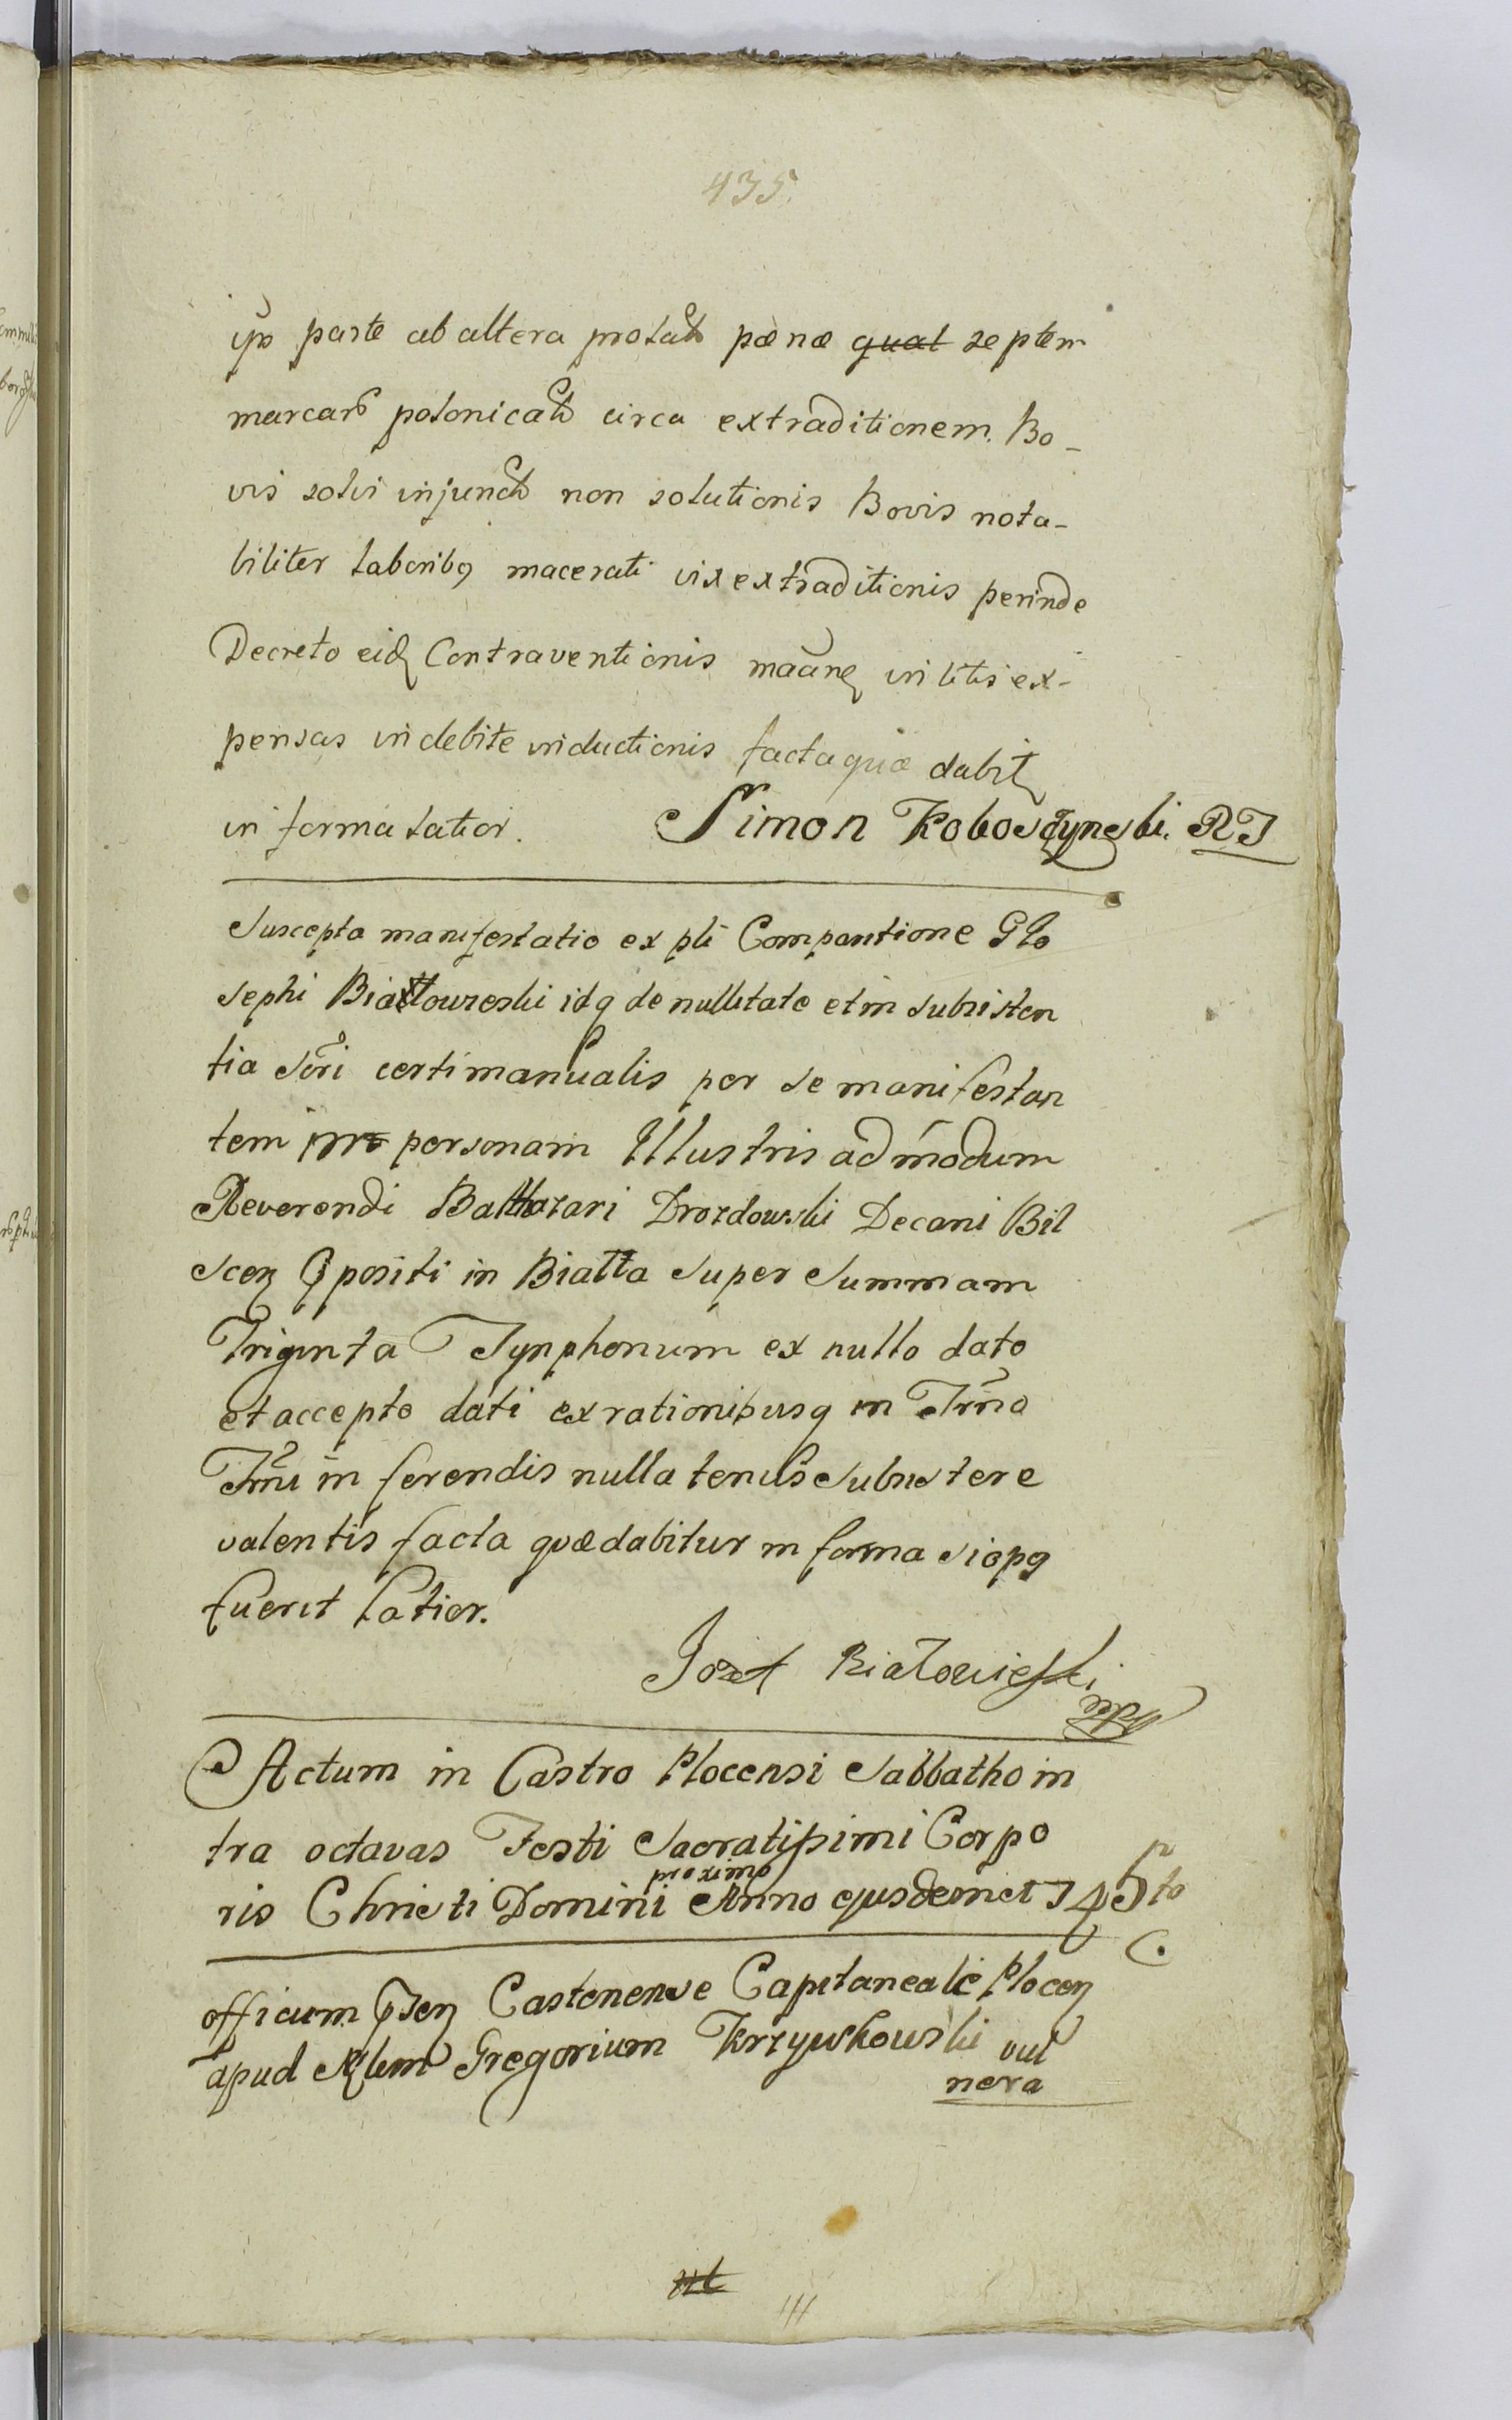 435.
parte ab altera pænæ qual septem
marcar polonical circa extraditionem. Bo-
vis solvi injunct non solutionis Bovis nota-
biliter laboribq macerati vix extraditionis perinde
Decreto eid Contraventionis in litis ex-
pensas indebite inductionis facta quæ dabit
in forma latior. Simon RJ
Suscepta manifestatio ex pli Glo
sephi idq de nullitate et in subsisten
tia Scri certi manualis per se manifestan
tem personam Illustris admodum
Reverendi Balthazari Drozdowski Decani Bil
scen positi in Biatta super Summam
Triginta Tynphonum ex nullo dato
et accepto dati ex rationibusq in Trno
Trni in ferendis nulla tenus Subsistere
valentis facta quædabitur in forma si opq
fuerit latior.
Jozef Białowieski
mp
Actum in Castro Plocensi Sabbatho in
tra octavas Festi Sacratissimi Corpo
proximo
ris Christi Domini Anno ejusdemet 745to
officium Castrenense Capitaneale Plocen
apud Gregorium Krzywkowski vul
nera